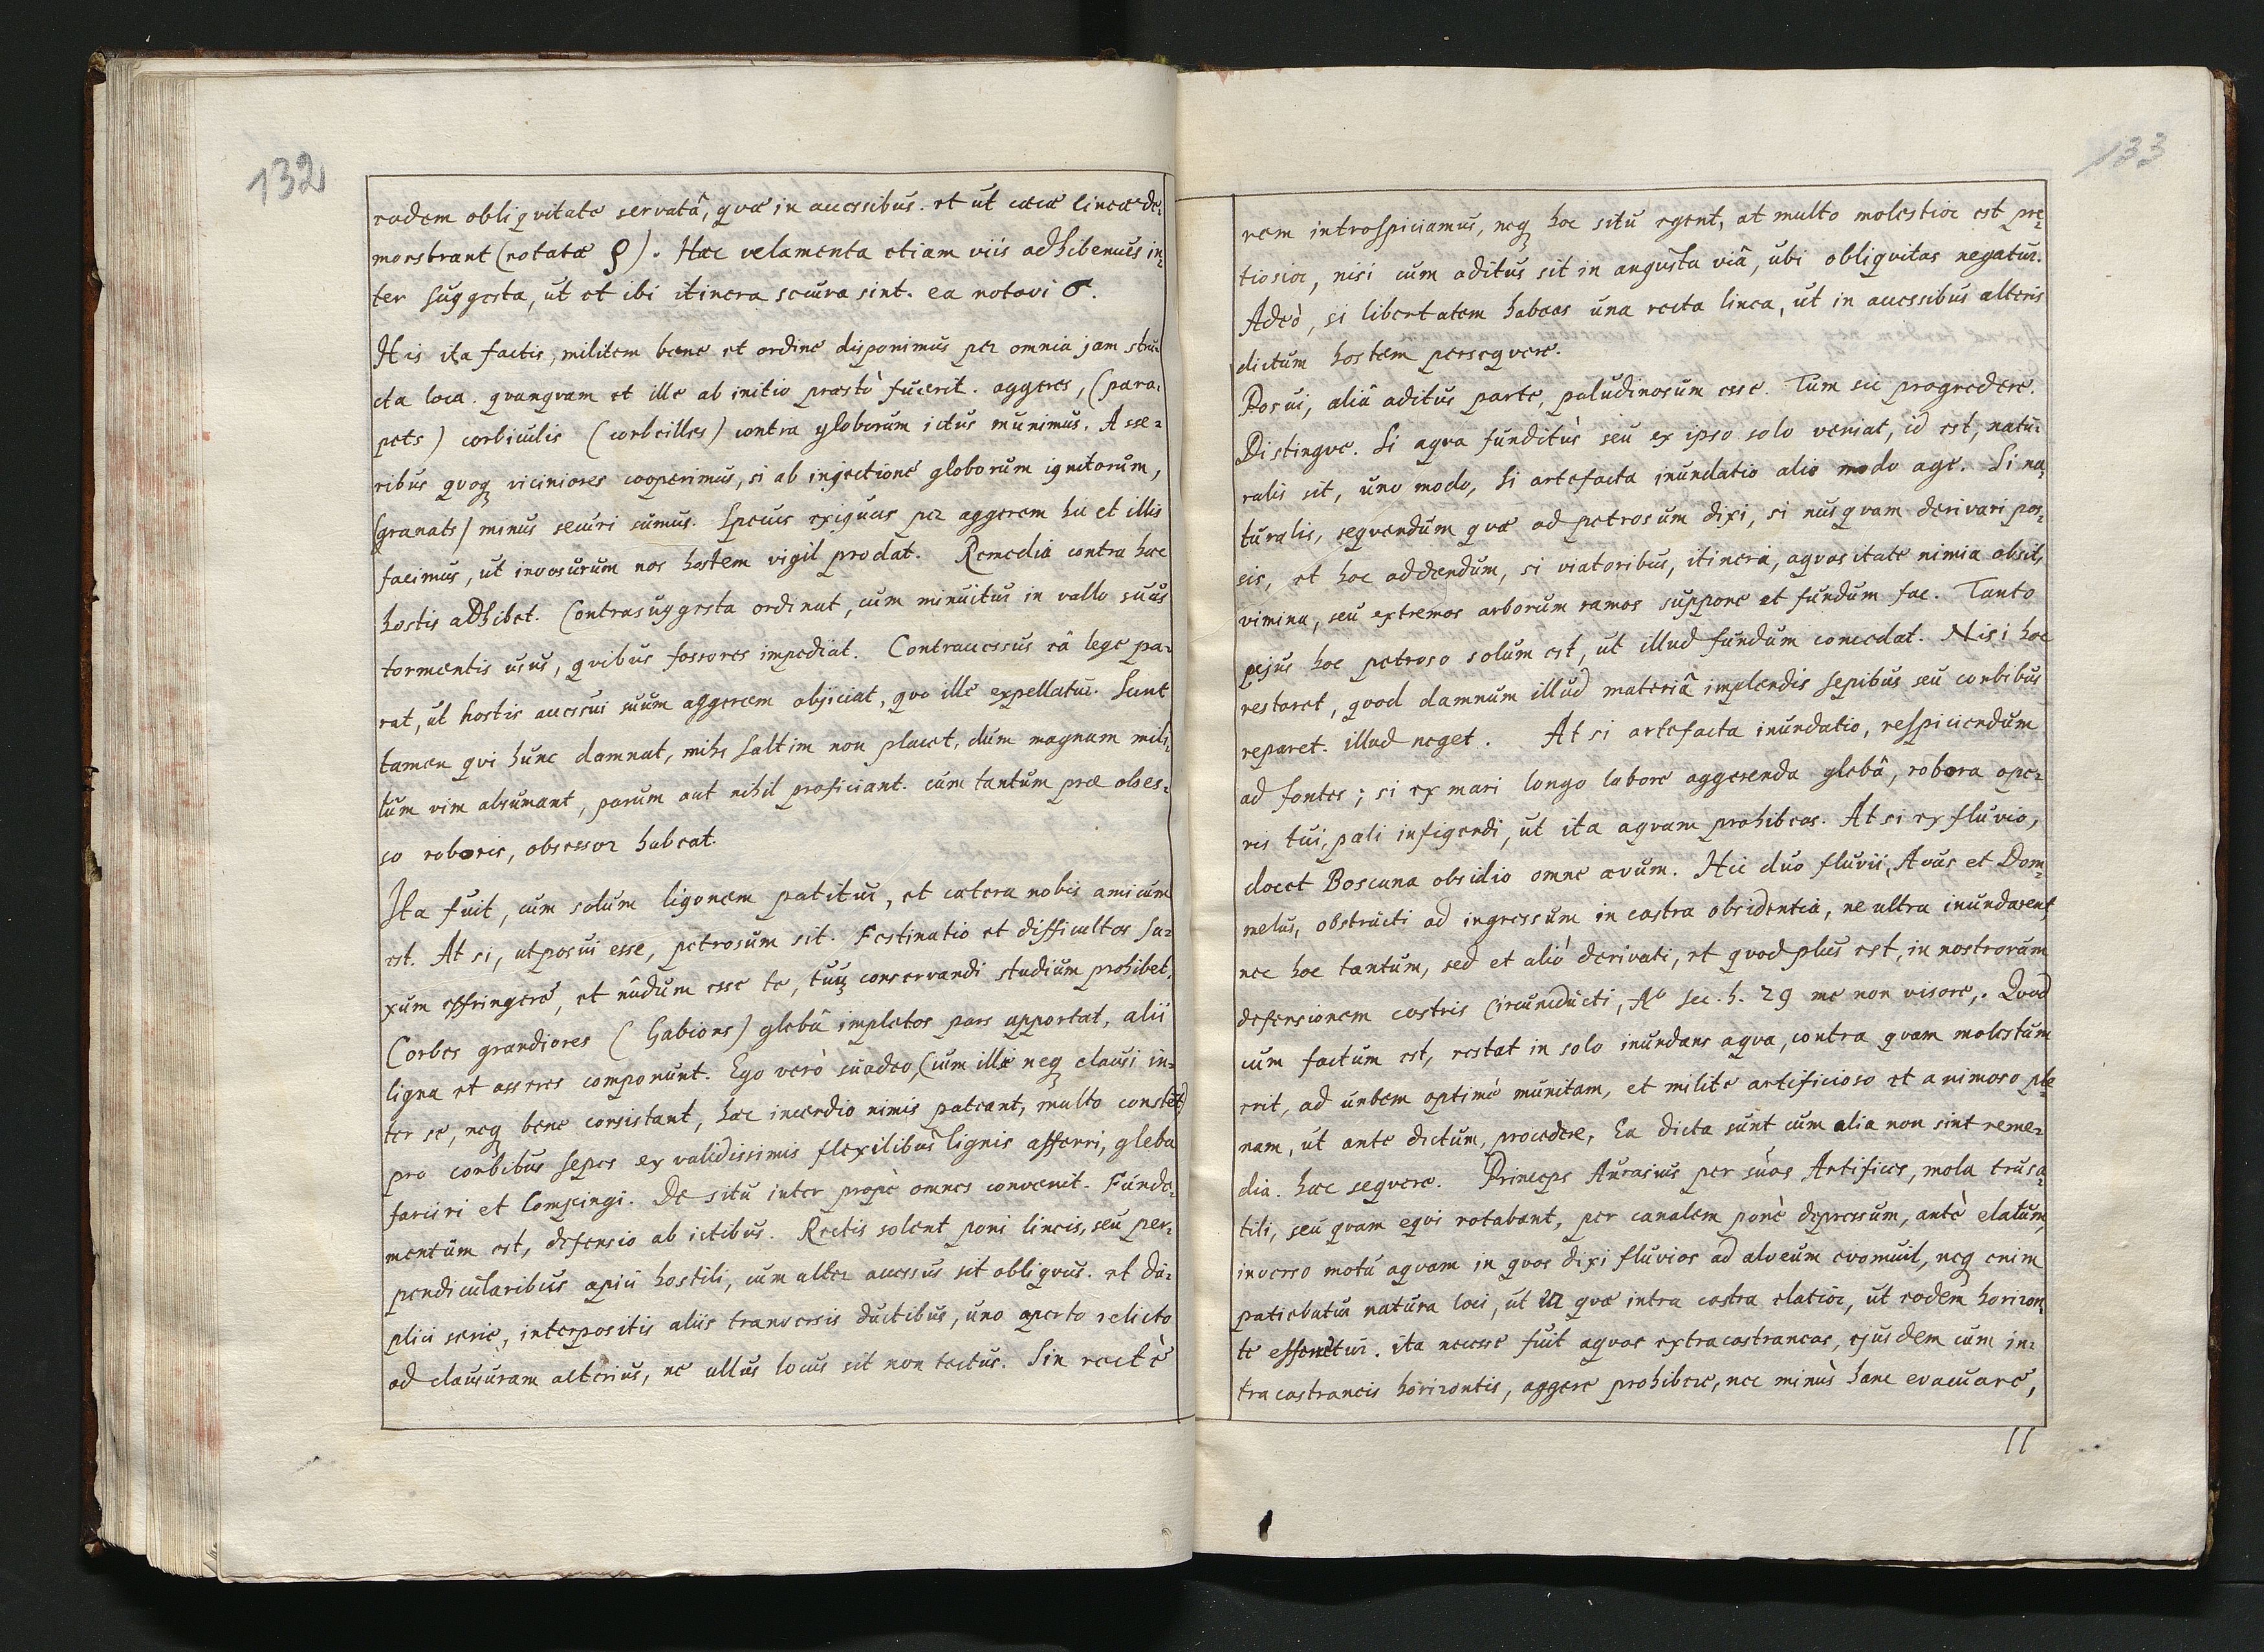 132
eadem obliqvitate servatâ, qvæ in accessibus. et ut cæcæ lineæ de-
monstrant (notatæ ϱ). Hæc velamenta etiam viis adhibemus in-
ter suggesta, ut et ibi itinera secura sint. ea notavi σ.
His ita factis, militem bene et ordine disponimus per omnia jam stru-
cta loca. qvanqvam et ille ab initio præstò fuerit. aggeres, (para-
pets) corbiculis (corbeilles) contra globorum ictus munimus. Asse-
ribus qvoq viciniores cooperimus, si ab injectione globorum ignitorum,
(granats) minus securi sumus. Specus exiguus per aggerem hic et illis
facimus, ut invasurum nos hostem vigil prodat. Remedia contra hæc
hostis adhibet. Contrasuggesta ordinat, cum minuitur in vallo suus
tormentis usus, qvibus fossores impediat. Contraccessus eâ lege pa-
rat, ut hostis accessui suum aggerem objiciat, qvo ille expellatur. Sunt
tamen qvi hunc damnat, mihi saltim non placet, dum magnam mili-
tum vim absumant, parum aut nihil proficiant. cum tantum præ obses-
so roboris, obsessor habeat.
Ita fuit, cum solum ligonem patitur, et cætera nobis amicum
est. At si, ut posui esse, petrosum sit. Festinatio et difficultas sa-
xum effringere, et nûdum esse te, tuiq conservandi studium prohibet.
Corbes grandiores (Gabions) glebâ impletos pars apportat, alii
ligna et asseres componunt. Ego verò suadeo, (cum illi neq clausi in-
ter se, neq bene consistant, hæc incendio nimis pateant, multo constet)
pro corbibus sepes ex validissimis flexilibus lignis afferri, gleba
farciri et Compingi. De situ inter propè omnes convenit. Funda-
mentum est, defensio ab ictibus. Rectis solent poni lineis, seu per-
pendicularibus apici hostili, cum alter accessus sit obliqvus. et du-
plici serie, interpositis aliis tranversis ductibus, uno aperto relicto
ad clausuram alterius, ne ullus locus sit non tectus. Sin rectè
133
rem introspiciamus, neq hoc situ egent, at multo molestior est pre-
tiosior, nisi cum aditus sit in angusta viâ, ubi obliqvitas negatur.
Adeò, si libertatem habeas una recta linea, ut in accessibus alteris
dictum hostem perseqvere.
Posui, aliâ aditus parte, paludinosum esse. Tum sic progredere.
Distingve. Si aqva funditùs seu ex ipso solo veniat, id est, natu-
ralis sit, uno modo, si artefacta inundatio alio modo age. Si na-
turalis, seqvendum qvæ ad petrosum dixi, si nusqvam derivari pos-
sis, et hoc addendum, si viatoribus, itineri, aqvositate nimia obsit,
vimina, seu extremos arborum ramos suppone et fundum fac. Tanto
pejus hoc petroso solum est, ut illud fundum comedat. Nisi hoc
restaret, qvod damnum illud materiâ implendis sepibus seu corbibus
reparet. illud neget. At si artefacta inundatio, respiciendum
ad fontes; si ex mari longo labore aggerenda glebâ, robora ope-
ris tui, pali infigendi, ut ita aqvam prohibeas. At si ex fluvio,
docet Boscana obsidio omne ævum. Hic duo fluvii, Avus et Dom-
melus, obstructi ad ingressum in castra obsidentia, ne ultra inundarent
nec hoc tantum, sed et aliò derivati, et qvod plus est, in nostrorum
defensionem castris circumducti, Ao sec. h. 29 me non visore. Qvod
cum factum est, restat in solo inundans aqva, contra qvam molestum
erit, ad urbem optimè munitam, et milite artificioso et animoso ple-
nam, ut ante dictum, procedere, Ea dicta sunt cum alia non sint reme-
dia. hæc seqvere. Princeps Aurasius per súos Artifices, mola trusa-
tili, seu qvam eqvi rotabant, per canalem ponè depressum, antè elatum,
inverso motu aqvam in qvos dixi fluvios ad alveum evomuit, neq enim
patiebatur natura loci, ut qvæ intra castra elatior, ut eodem horizon-
te efferretur. ita necesse fuit aqvas extracastraneas, ejusdem cum in-
tracastraneis horizontis, aggere prohibere, nec minùs hanc evacuare,